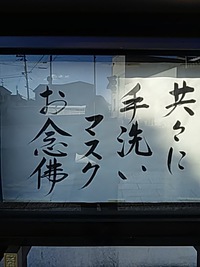 共々に
手洗い
マスク
お念佛